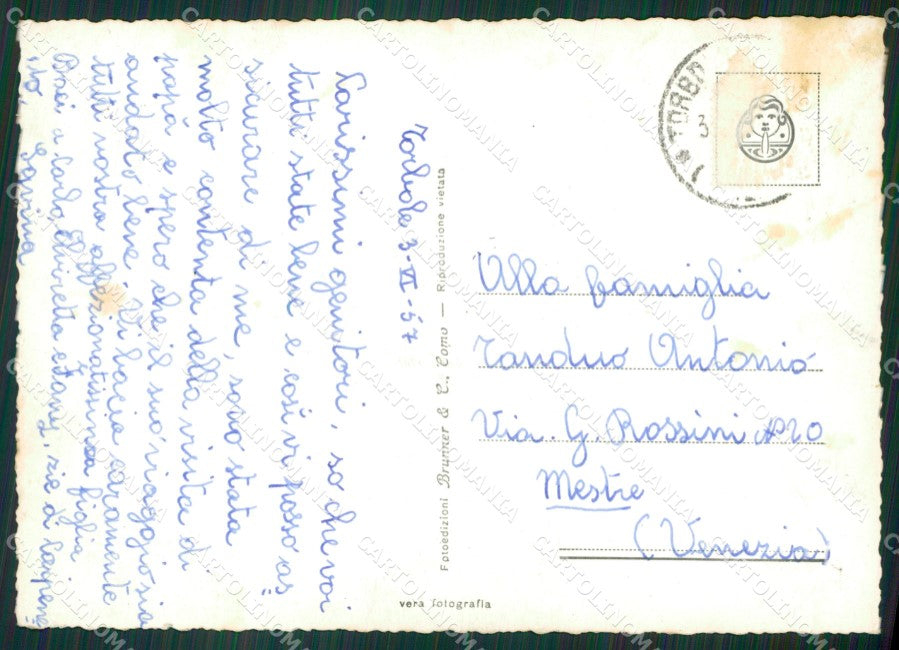 Torbole 3-VI-57
Carissimi genitori, so che voi
tutti state bene e così vi posso as
sicurare di me, sono stata
molto contenta della visita di
papà e spero che il suo viaggio sia
andato bene. Vi bacia caramente
tutti vostra affezionatissima figlia
Baci a Carlo, zie di
Lavina
Fotoedizioni Brunner & C., Como — Riproduzione vietata
vera fotografia
TORBO
3
Alla famiglia
Tanduo Antonio
Via. G. Rossini N° 20
Mestre
(Venezia)
CARTOLINOMANIA